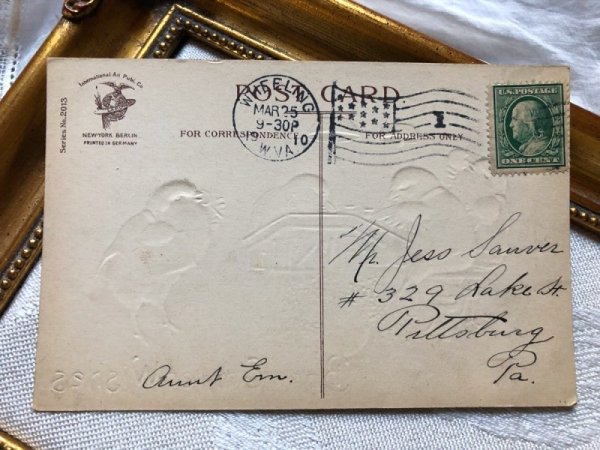 International Art Publ. Co.
NEW YORK BERLIN
PRINTED IN GERMANY
Series No. 2013
POST CARD
FOR CORRESPONDENCE
FOR ADDRESS ONLY
WHEELING
MAR 25
9-30P
10
W.VA.
1
U.S. POSTAGE
ONE CENT
Mr. Jess Sauver
# 329 Lake St.
Pittsburg
Pa.
Aunt Em.